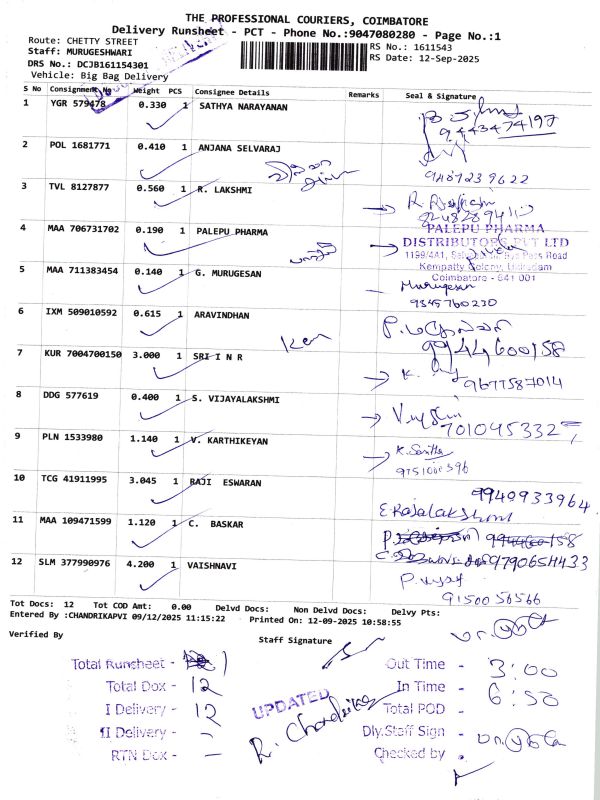 THE PROFESSIONAL COURIERS, COIMBATORE
Delivery Runsheet - PCT - Phone No.:9047080280 - Page No.:1
Route: CHETTY STREET
RS No.: 1611543
Staff: MURUGESHWARI
RS Date: 12-Sep-2025
DRS No.: DCJB161154301
Vehicle: Big Bag Delivery
S No Consignment No Weight PCS Consignee Details Remarks Seal & Signature
1 YGR 579478 0.330 1 SATHYA NARAYANAN
9443474197
2 POL 1681771 0.410 1 ANJANA SELVARAJ
9487239622
3 TVL 8127877 0.560 1 R. LAKSHMI
4 MAA 706731702 0.190 1 PALEPU PHARMA
PALEPU PHARMA
DISTRIBUTORS PVT LTD
1199/4A1, Road
Kempatty Colony,
Coimbatore - 641 001
5 MAA 711383454 0.140 1 G. MURUGESAN
Murugesan
9345760230
6 IXM 509010592 0.615 1 ARAVINDHAN
9944600158
7 KUR 7004700150 3.000 1 SRI I N R
K.
9677587014
8 DDG 577619 0.400 1 S. VIJAYALAKSHMI
9 PLN 1533980 1.140 1 V. KARTHIKEYAN
K. Savitha
9751000396
10 TCG 41911995 3.045 1 RAJI ESWARAN
9940933964
E Rajalakshmi
11 MAA 109471599 1.120 1 C. BASKAR
9790654433
12 SLM 377990976 4.200 1 VAISHNAVI
9150056566
Tot Docs: 12 Tot COD Amt: 0.00 Delvd Docs: Non Delvd Docs: Delvy Pts:
Entered By :CHANDRIKAPVI 09/12/2025 11:15:22 Printed On: 12-09-2025 10:58:55
Verified By Staff Signature
Total Runsheet - 1
Total Dox - 12
I Delivery - 12
II Delivery -
RTN Dox -
UPDATED
R. Chandrika
Out Time - 3:00
In Time - 6:50
Total POD -
Dly.Staff Sign -
Checked by